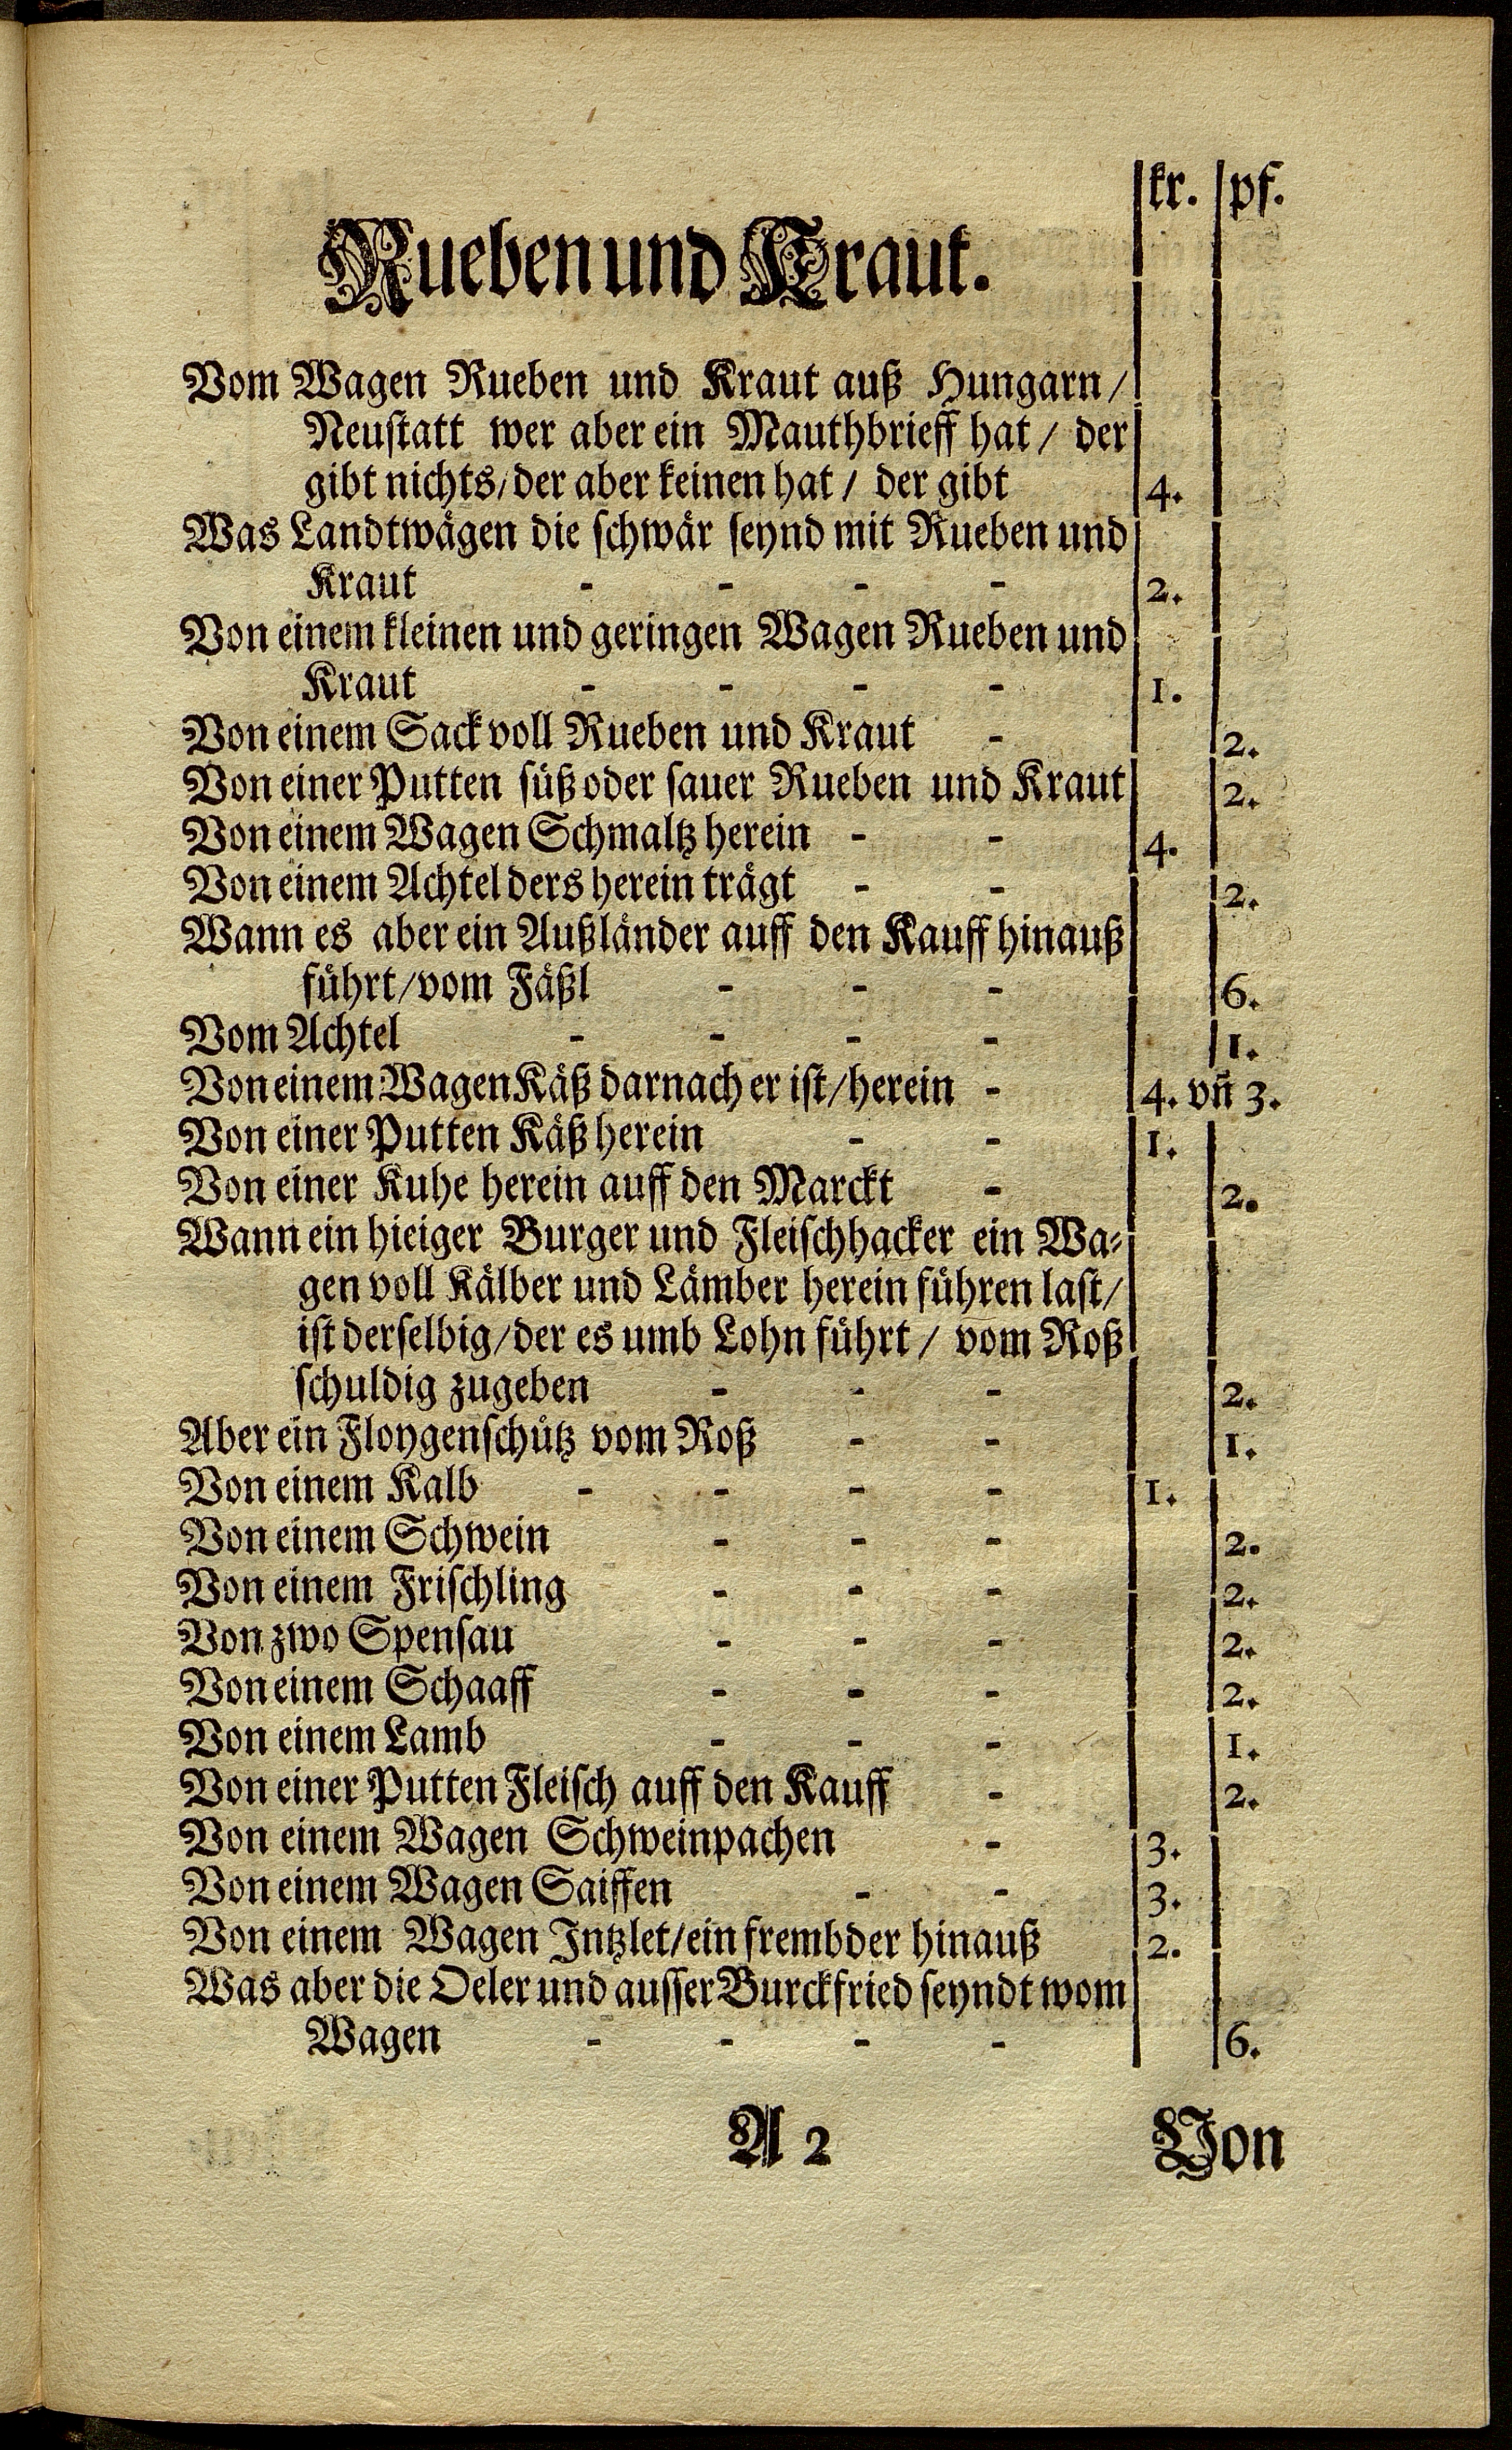 kr. pf.
Rueben und Kraut.
Vom Wagen Rueben und Kraut auß Hungarn/
Neustatt wer aber ein Mauthbrieff hat / der
gibt nichts/ der aber keinen hat / der gibt 4.
Was Landtwägen die schwär seynd mit Rueben und
Kraut - - - - 2.
Von einem kleinen und geringen Wagen Rueben und
Kraut - - - - 1.
Von einem Sack voll Rueben und Kraut - 2.
Von einer Putten süß oder sauer Rueben und Kraut 2.
Von einem Wagen Schmaltz herein - - 4.
Von einem Achtel ders herein trägt - - 2.
Wann es aber ein Außländer auff den Kauff hinauß
führt/vom Fäßl - - - 6.
Vom Achtel - - - - 1.
Von einem Wagen Käß darnach er ist/herein - 4. vñ 3.
Von einer Putten Käß herein - - 1.
Von einer Kuhe herein auff den Marckt - 2.
Wann ein hieiger Burger und Fleischhacker ein Wa-
gen voll Kälber und Lämber herein führen last/
ist derselbig/der es umb Lohn führt / vom Roß
schuldig zugeben - - - 2.
Aber ein Floygenschütz vom Roß - - 1.
Von einem Kalb - - - - 1.
Von einem Schwein - - - 2.
Von einem Frischling - - - 2.
Von zwo Spensau - - - 2.
Von einem Schaaff - - - 2.
Von einem Lamb - - - 1.
Von einer Putten Fleisch auff den Kauff - 2.
Von einem Wagen Schweinpachen - 3.
Von einem Wagen Saiffen - - 3.
Von einem Wagen Intzlet/ein frembder hinauß 2.
Was aber die Oeler und ausser Burckfried seyndt wom
Wagen - - - - 6.
A 2 Von